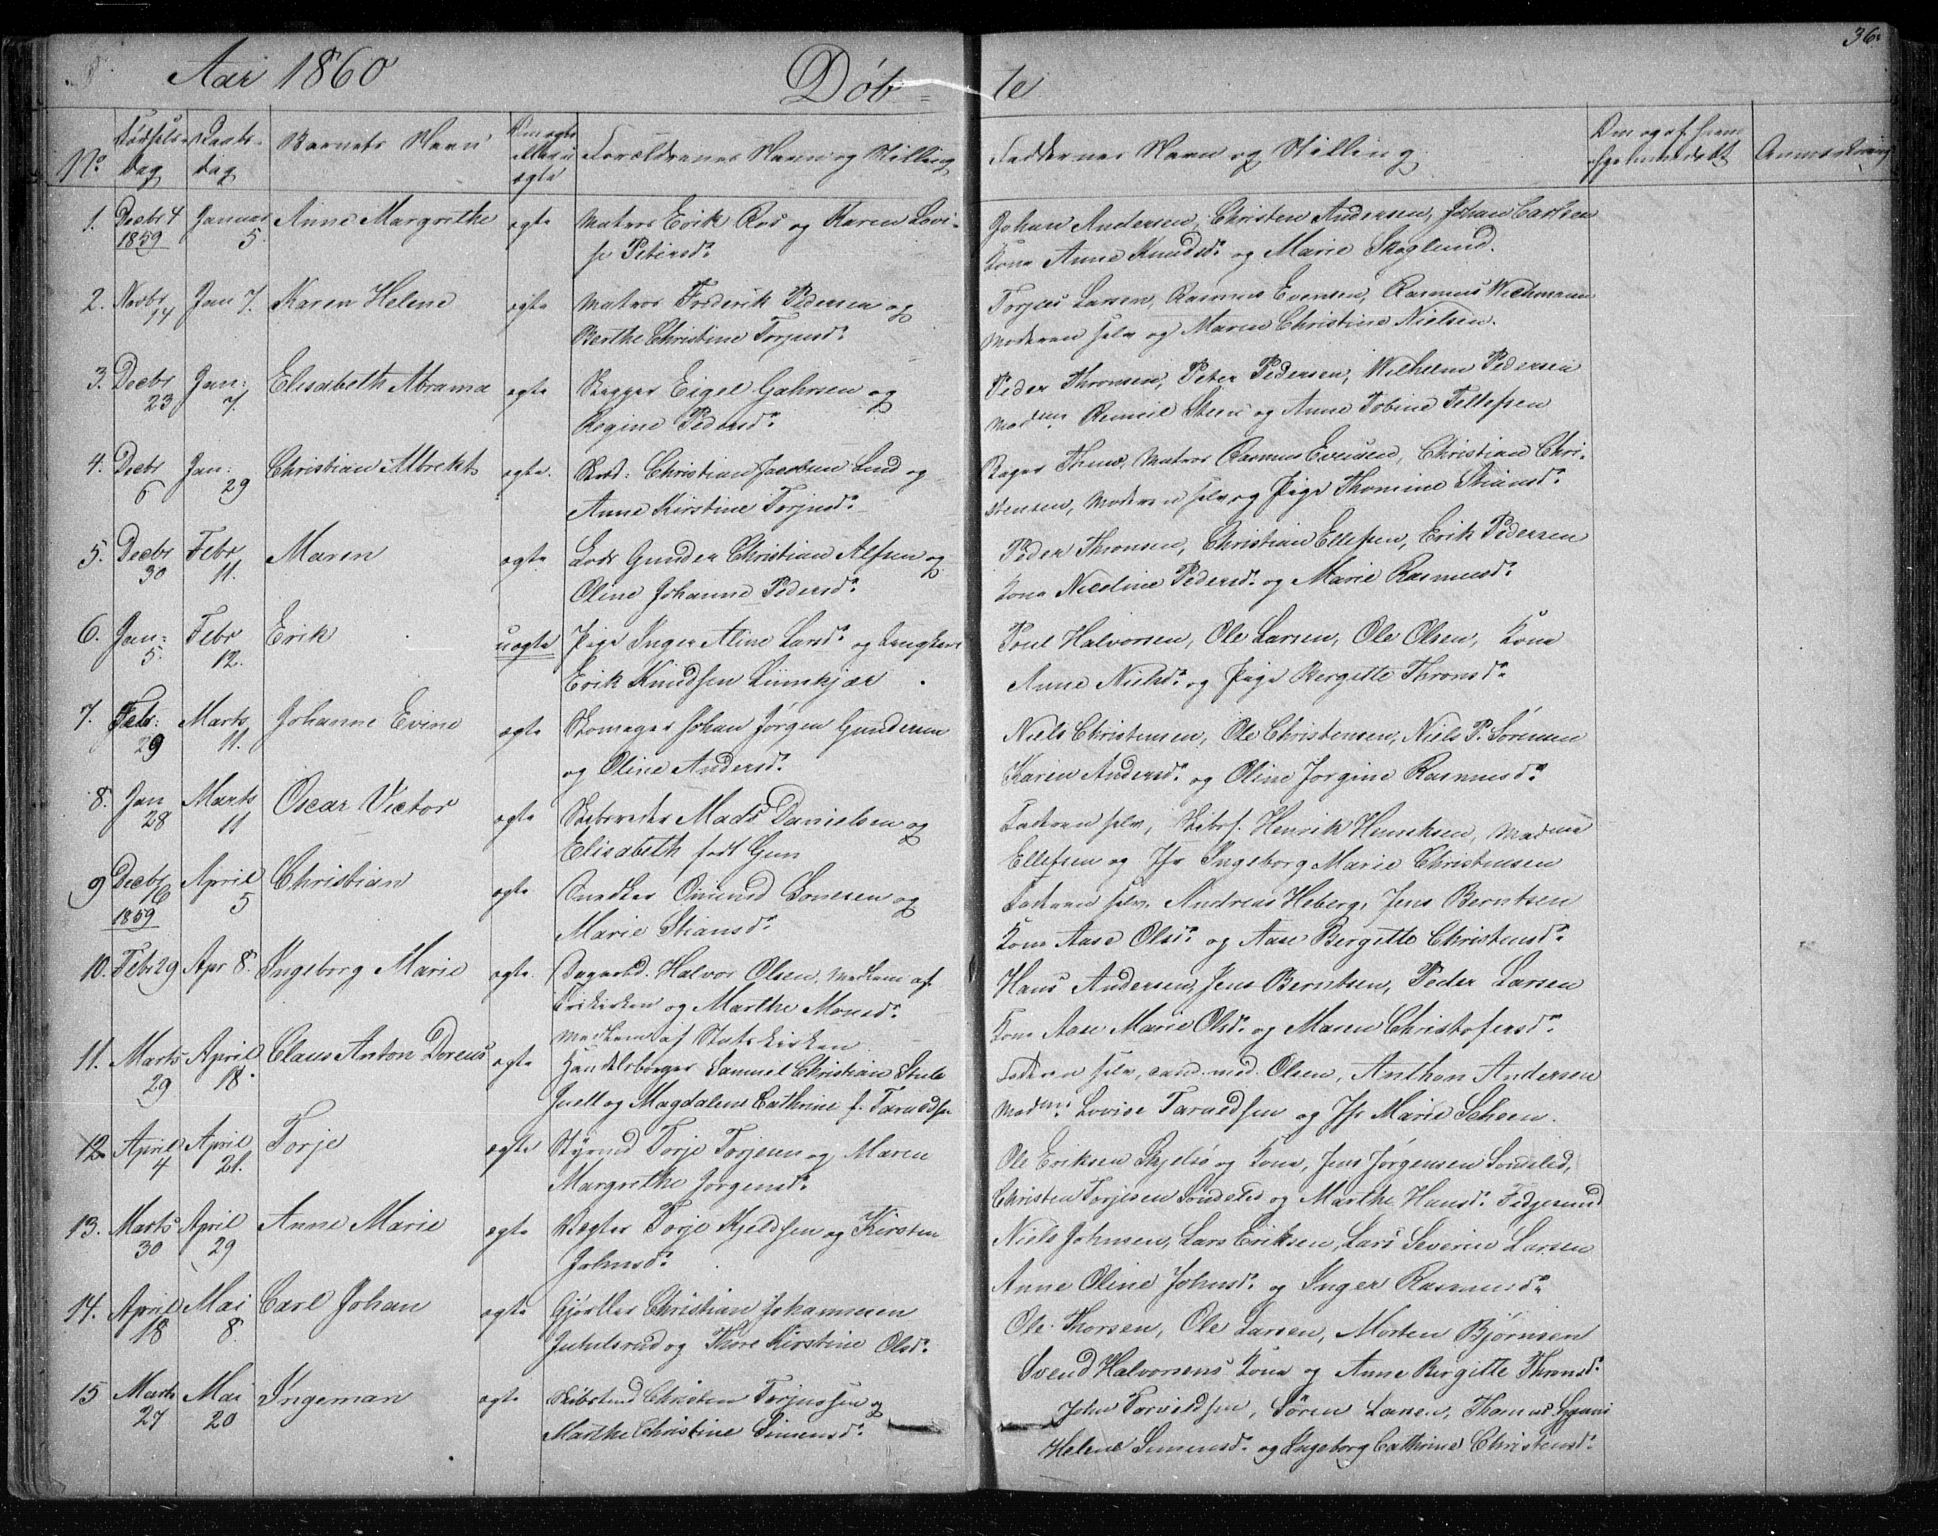 36.
Aar 1860
Døb = te
No Fødsels dag Daabs dag Barnets Navn Om ægte eller uægte Forældrenes Navn og Stilling Faddernes Navn og Stilling Anmærkning
1. Decbr 4 1859 Januar 5. Anne Margrethe ægte Matros Erik Roed og Karen Lovi-
se Petersdr
Johan Andersen, Christen Andersen, Johan Carlsen
Kone Anne Knudsdr og Marie Skoglund.
2. Novbr 14 Jan 7. Karen Helene ægte Matros Frederik Pedersen og
Berthe Christine Torjusdr
Torjus Larsen, Rasmus Evensen, Rasmus Wichmann
Moderen selv og Maren Christine Nielsen.
3. Decbr 23 Jan: 7. Elisabeth Abrama ægte Eigel Gahrsen og
Regine Pedersdr
Peder Thronsen, Peter Pedersen, Wilhelm Pedersen
Madm Steen og Anne Tobine Tellefsen
4. Decbr 6 Jan: 29 Christian Albrekt ægte. Christian Jacobsen Lund og
Anne Kirstine Torjusdr
Matros Rasmus Evensen, Christian Chri-
stensen, Moderen selv og Pige Thomine Stiansdr
5. Decbr 30 Febr 11. Maren ægte Lods Gunder Christian Alfsen og
Oline Johanne Pedersdr
Peder Thronsen, Christian Ellefsen, Erik Pedersen
Kone Nicoline Pedersdr og Marie Rasmusdr
6. Jan: 5. Febr 12. Erik uægte Pige Inger Aline Larsdr og Ungkarl
Erik Knudsen Liimkjær
Poul Halvorsen, Ole Larsen, Ole Olsen, Kone
Anne Nielsdr og Pige Bergette Thronsdr
7. Febr: 29 Marts 11. Johanne Evine ægte Skomager Johan Jørgen Gundersen
og Oline Andersdr
Niels Christensen, Ole Christensen, Niels P. Sørensen
Karen Andersdr og Oline Jørgine Rasmusdr
8. Jan 28 Marts 11 Oscar Victor ægte Skibsreder Mads Danielsen og
Elisabeth født Gun
Faderen selv, Skibsf. Henrik Henriksen, Madme
Ellefsen og Jfr Ingeborg Marie Christensen
9 Decbr 16 1859 April 5 Christian ægte Snedker Omund Tonesen og
Marie Stiansdr
Faderen selv, Andreas Heberg, Jens Berntsen
Kone Aase Olsdr og Aase Bergette Christensdr
10. Febr 29 Apr 8. Ingeborg Marie ægte. Dagarbd. Halvor Olsen, Medlem af
Frikirken og Marthe Monsdr
Medlem af Statskirken
Hans Andersen, Jens Berntsen, Peder Larsen
Kone Aase Marie Olsdr og Maren Christofersdr
11. Marts 29 April 18. Claus Anton Doreus ægte Handelsborger Samuel Christian Stub
Juell og Magdalene Cathrine f. Tarvedsen
Faderen selv, cand. med. Olsen, Anthon Andersen
Madme Lovise Tarvedsen og Jfr Marie Scheen.
12 April 4 April 21. Torje ægte Styrmd Torje Torjesen og Maren
Margrethe Jørgensdr
Ole Eriksen Skjelsø og Kone, Jens Jørgensen Sondeled,
Christen Torjesen Sondeled og Marthe Hansdr
13. Marts 30 April 29 Anne Marie ægte Vægter Torje Kjeldsen og Kirsten
Johnsdr
Niels Johnsen, Lars Eriksen, Lars Severin Larsen
Anne Oline Johnsdr og Inger Rasmusdr
14. April 18 Mai 8. Carl Johan ægte Gjørtler Christian Johannesen
Juhulsrud og Thore Kirstine Olsdr
Ole Thorsen, Ole Larsen, Morten Bjørnsen
Svend Halvorsens Kone og Anne Bergitte Thronsdr
15 Marts 27 Mai 20 Ingeman ægte Christen Torjussen og
Marthe Christine Simensdr
John Torvildsen, Søren Larsen, Thomas
Helene Simensdr og Ingeborg Cathrine Christensdr